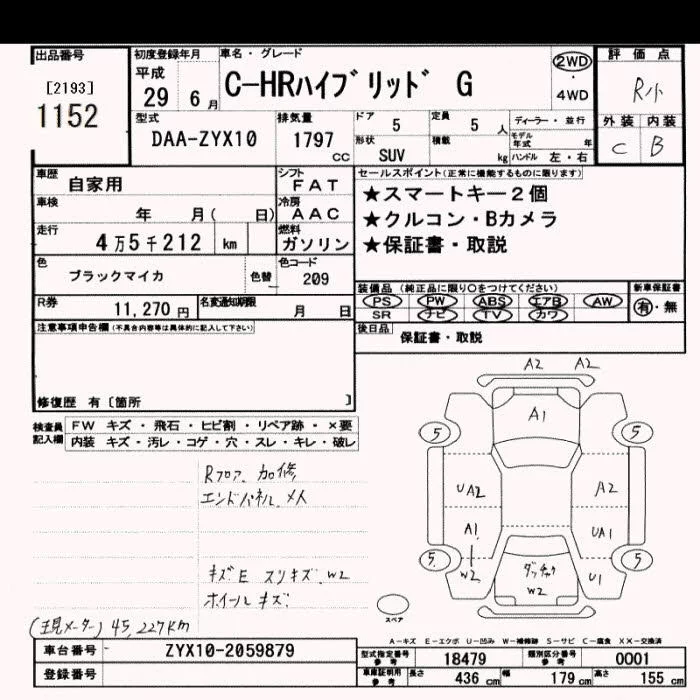 出品番号
[2193]
1152
初度登録年月
平成
29 6月
車名・グレード
C-HRハイブリッド G
2WD
・
4WD
評価点
R小
外装 内装
C B
型式
DAA-ZYX10
排気量
1797
CC
ドア
5
定員
5 人
形状
SUV
積載
kg
ディーラー・並行
モデル
年式 年
ハンドル 左・右
車歴
自家用
シフト
FAT
車検
年 月( 日)
冷房
AAC
走行
4万5千212 km
燃料
ガソリン
色
ブラックマイカ
色替
色コード
209
R券
11,270円
名変通知期限
月 日
セールスポイント(正常に機能するものに限ります)
★スマートキー2個
★クルコン・Bカメラ
★保証書・取説
装備品 (純正品に限り○をつけてください)
PS PW ABS エアB AW
SR ナビ TV カワ
新車保証書
有・無
後日品
保証書・取説
注意事項申告欄(不具合内容等は具体的に記入して下さい)
修復歴 有〔箇所 〕
検査員
記入欄
FW キズ・飛石・ヒビ割・リペア跡・×要
内装 キズ・汚レ・コゲ・穴・スレ・キレ・破レ
Rフロア 加修
エンドパネル メイ
キズE スリキズ. W2
ホイールキズ
(現メーター) 45,227km
A2 A2
A1
5 5
UA2 A2
A1 UA1
5 5
W2 U1
W2
スペア
A-キズ E-エクボ U-凹み W-補修跡 S-サビ C-腐食 XX-交換済
車台番号
ZYX10-2059879
登録番号
型式指定番号
参考
18479
類別区分番号
参考
0001
車庫証明用
参考
長さ 436 cm 幅 179 cm 高さ 155 cm